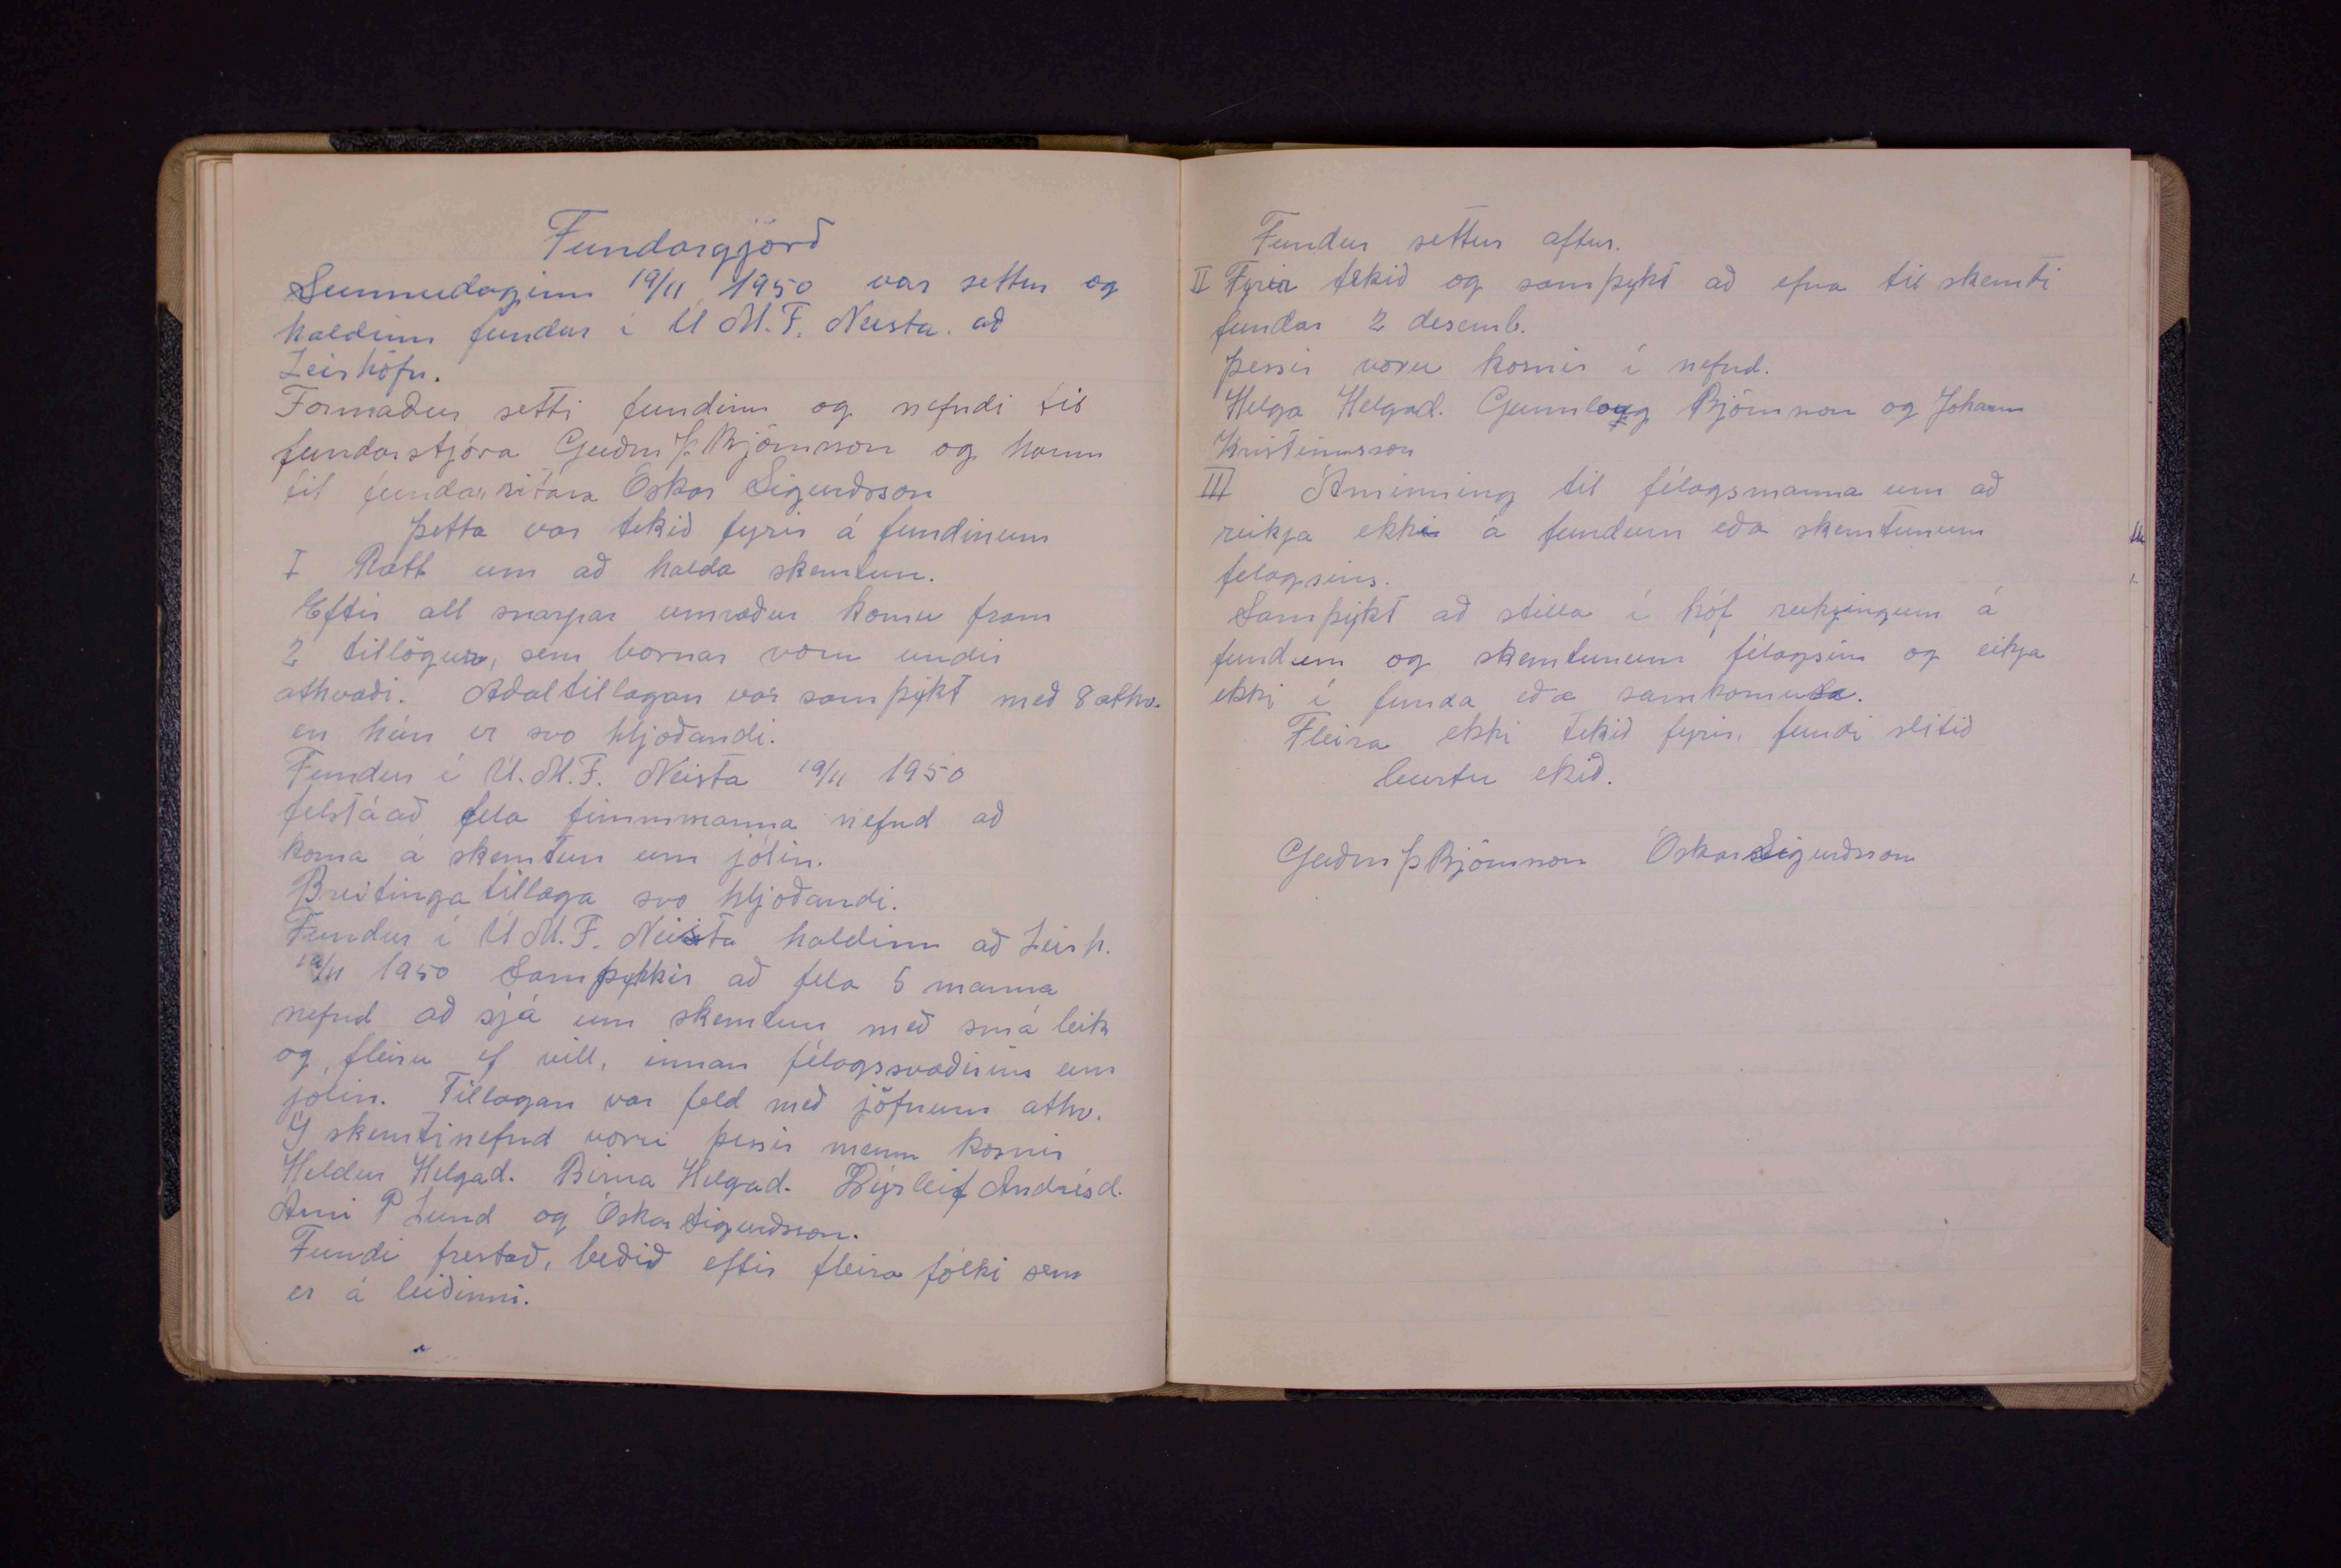 Fundargjörð
Sunnudaginn 19/11 1950 var settur og
haldinn fundur í U M.F. Neista. að
Leirhöfn.
Formaður setti fundinn og nefndi til
fundarstjóra Guðm Þ. Björnsson og hann
til fundarritara Óskar Sigurðsson
Þetta var tekið fyrir á fundinum
I Rætt um að halda skemtun.
Eftir all snarpar umræður komu fram
2 tillögur, sem bornar voru undir
athvæði. Aðaltillagan var samþykt með 8 athv.
en hún er svo hljóðandi.
Fundur í U.M.F. Neista 19/11 1950
felst á að fela fimmmanna nefnd að
koma á skemtun um jólin.
Breitinga tillaga svo hljóðandi.
Fundur í U M.F. Neista haldinn að Leirh.
19/11 1950 Samþykkir að fela 5 manna
nefnd að sjá um skemtun með smá leik
og fleiru ef vill, innan félagssvæðisins um
jólin. Tillagan var feld með jöfnum athv.
Í skemtinefnd voru þessir menn kosnir
Heldur Helgad. Birna Helgad. Dýrleif Andrésd.
Árni P Lund og Óskar Sigurðsson.
Fundi frestað, beðið eftir fleira fólki sem
er á leiðinni.
Fundur settur aftur.
II Fyrir tekið og samþykt að efna til skemti
fundar 2 desemb.
Þessir voru kosnir í nefnd.
Helga Helgad. Gunnlaug Björnsson og Johann
Kristinnsson
III Áminning til félagsmanna um að
reikja ekki á fundum eða skemtunum
félagsins.
Samþykt að stilla í hóf reikjingum á
fundum og skemtunum félagsins og eikja
ekki í funda eða samkomusa.
Fleira ekki tekið fyrir, fundi slitið
burtu ekið.
Guðm Þ Björnsson Óskar Sigurðsson